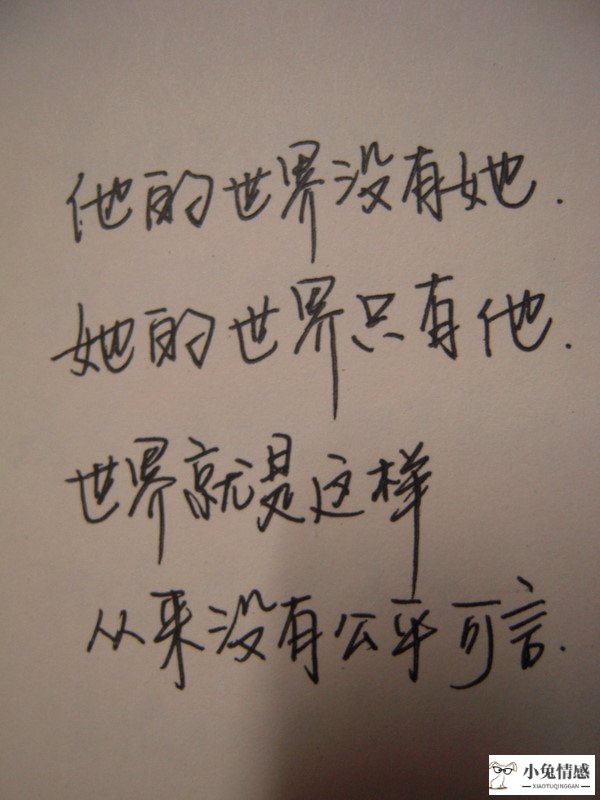 他的世界没有她.
她的世界只有他.
世界就是这样
从来没有公平可言.
小兔情感
XIAOTUQINGGAN